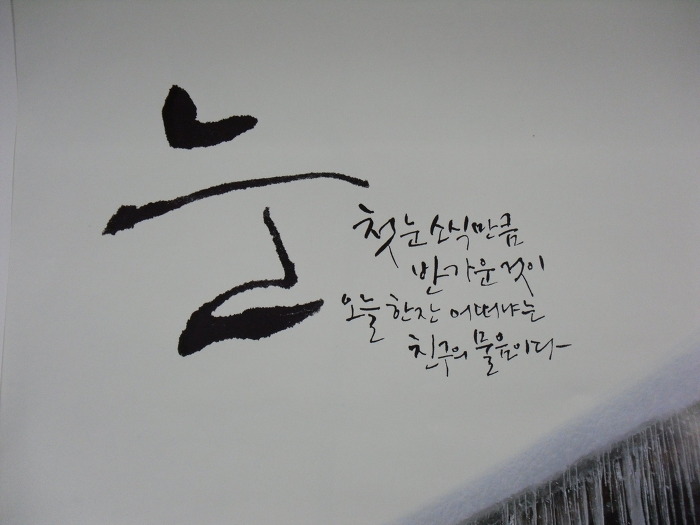 눈
첫눈 소식만큼
반가운 것이
오늘 한잔 어떠냐는
친구의 물음이다-